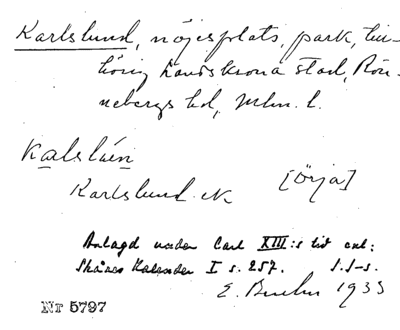 Karlslund, nöjesplats, park, till-
hörig Landskrona stad, Rön-
nebergs hd, Mlm. l.
Kalslúén
Karlslund. ek [Örja]
Anlagd under Carl XIII:s tid enl:
Skånes Kalender I s. 257. S.I-s.
E. 1933
Nr 5797